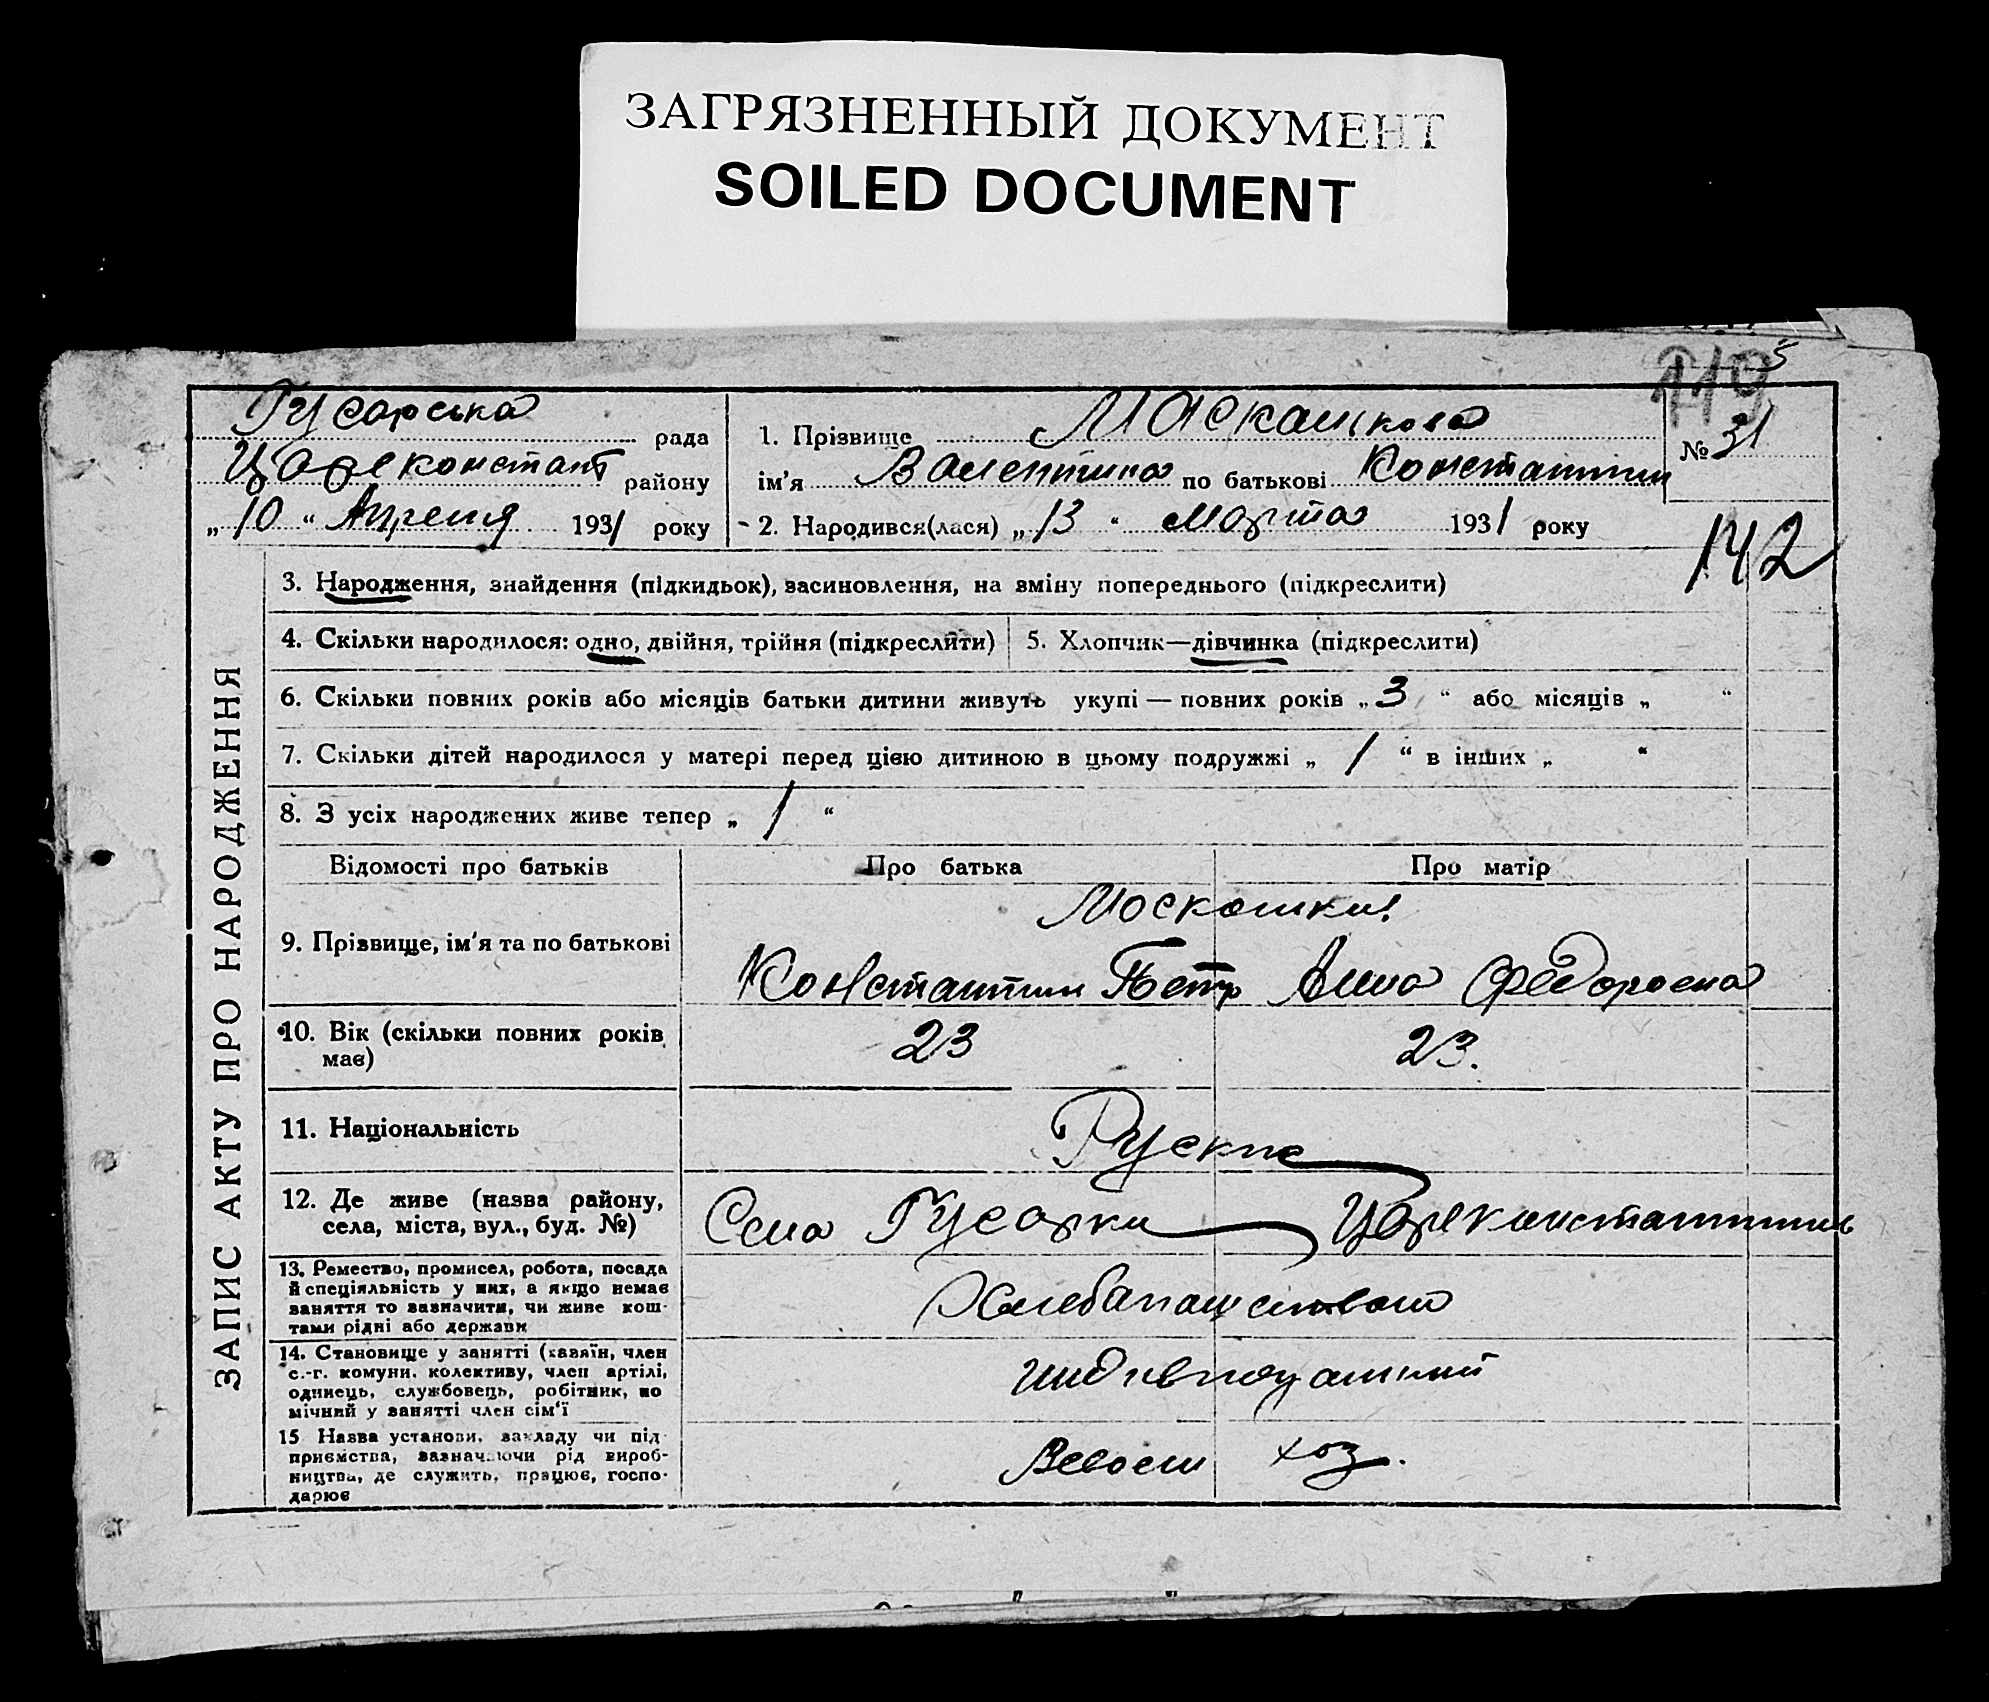 ЗАГРЯЗНЕННЫЙ ДОКУМЕНТ
SOILED DOCUMENT
119
5
Гусарська рада
Цареконстант району
„ 10 “ Апреля 1931 року
1. Прізвище Маскашкова
ім'я Валентина по батькові Константин
- 2. Народився(лася) „ 13 “ Марта 1931 року
№ 31
142
ЗАПИС АКТУ ПРО НАРОДЖЕННЯ
3. Народження, знайдення (підкидьок), засиновлення, на зміну попереднього (підкреслити)
4. Скільки народилося: одно, двійня, трійня (підкреслити)
5. Хлопчик—дівчинка (підкреслити)
6. Скільки повних років або місяців батьки дитини живуть укупі — повних років „ 3 “ або місяців „ “
7. Скільки дітей народилося у матері перед цією дитиною в цьому подружжі „ 1 “ в інших „ “
8. З усіх народжених живе тепер „ 1 “
Відомості про батьків
Про батька
Про матір
9. Прізвище, ім'я та по батькові
Москашки
Константин Петр Анна Федоровна
10. Вік (скільки повних років
має)
23
23.
11. Національність
Руские
12. Де живе (назва району,
села, міста, вул., буд. №)
Село Гусарки Цареконстантинов
13. Ремество, промисел, робота, посада
й спеціяльність у них, а якщо немає
заняття то зазначити, чи живе кош-
тами рідні або держави
Хлебапашество
14. Становище у занятті (хазяїн, член
с.-г. комуни, колективу, член артілі,
одинець, службовець, робітник, по
мічний у занятті член сім'ї
15 Назва установи, закладу чи під-
приємства, зазначаючи рід вироб-
ництва, де служить, працює, госпо-
дарює
хоз.